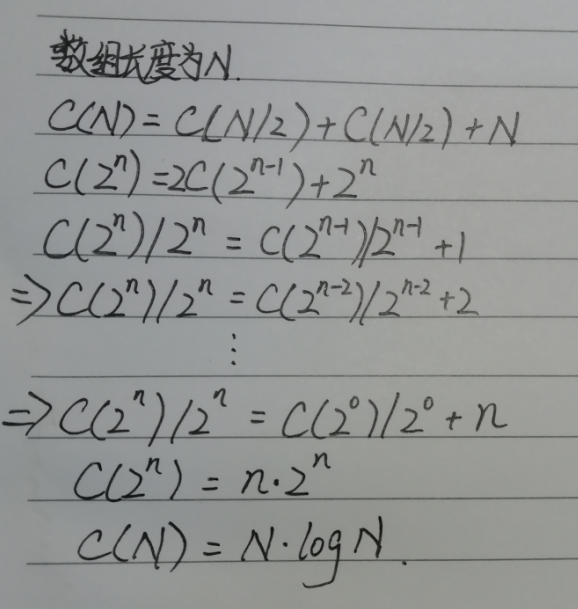 数组长度为N.
C(N) = C(N/2) + C(N/2) + N
C(2ⁿ) = 2C(2ⁿ⁻¹) + 2ⁿ
C(2ⁿ)/2ⁿ = C(2ⁿ⁻¹)/2ⁿ⁻¹ + 1
=> C(2ⁿ)/2ⁿ = C(2ⁿ⁻²)/2ⁿ⁻² + 2
⋮
=> C(2ⁿ)/2ⁿ = C(2⁰)/2⁰ + n
C(2ⁿ) = n·2ⁿ
C(N) = N·logN.